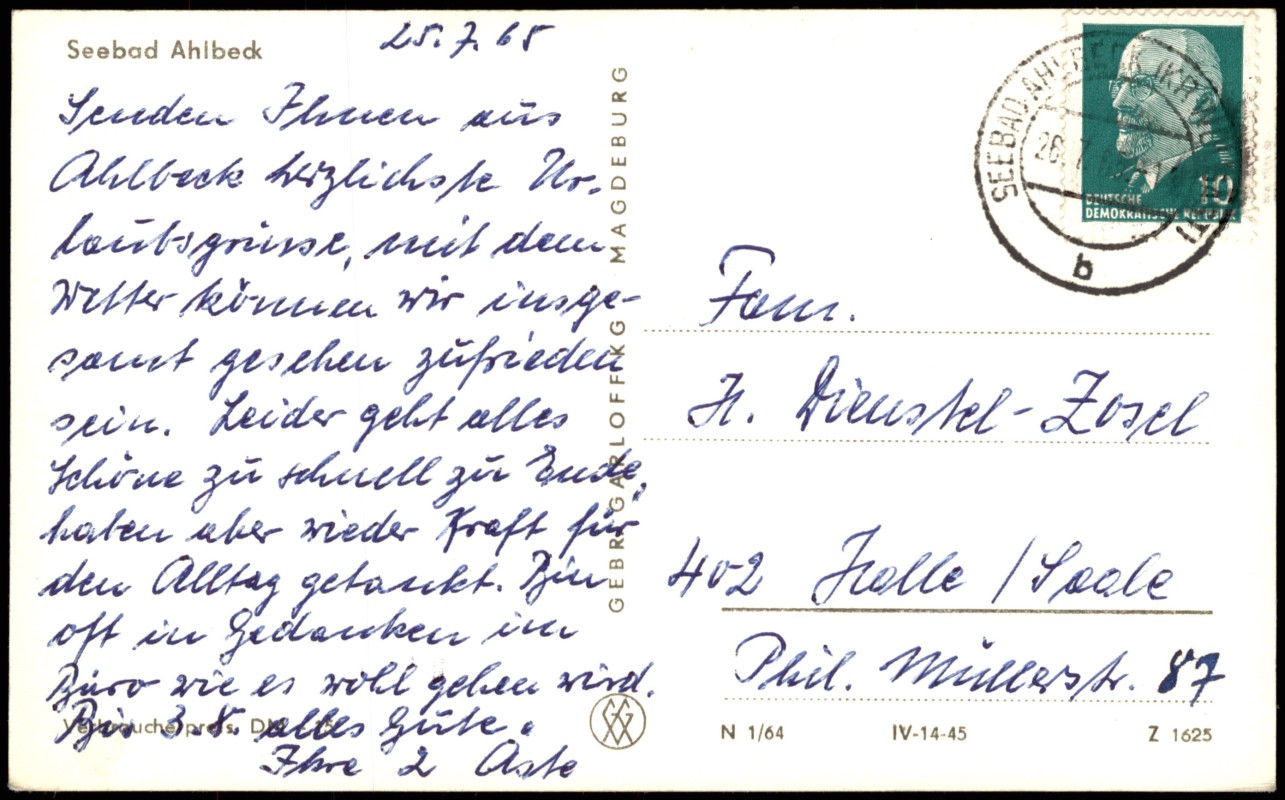 Seebad Ahlbeck
25.7.65
Senden Ihnen aus
Ahlbeck herzlichste Ur-
laubsgrüsse, mit dem
Wetter können wir insge-
samt gesehen zufrieden
sein. Leider geht alles
Schöne zu schnell zu Ende,
haben aber wieder Kraft für
den Alltag getankt. Bin
oft in Gedanken im
Büro wie es wohl gehen wird.
Bis 3.8. alles Gute.
Ihre 2 Aste
Verbraucherpreis DM -,15
GEBR. GARLOFF KG MAGDEBURG
SEEBAD AHLBECK
26.7.
b
10
DEUTSCHE
DEMOKRATISCHE REPUBLIK
Fam.
H. Dienstel-Zosel
402 Halle / Saale
Phil. Müllerstr. 87
N 1/64 IV-14-45 Z 1625